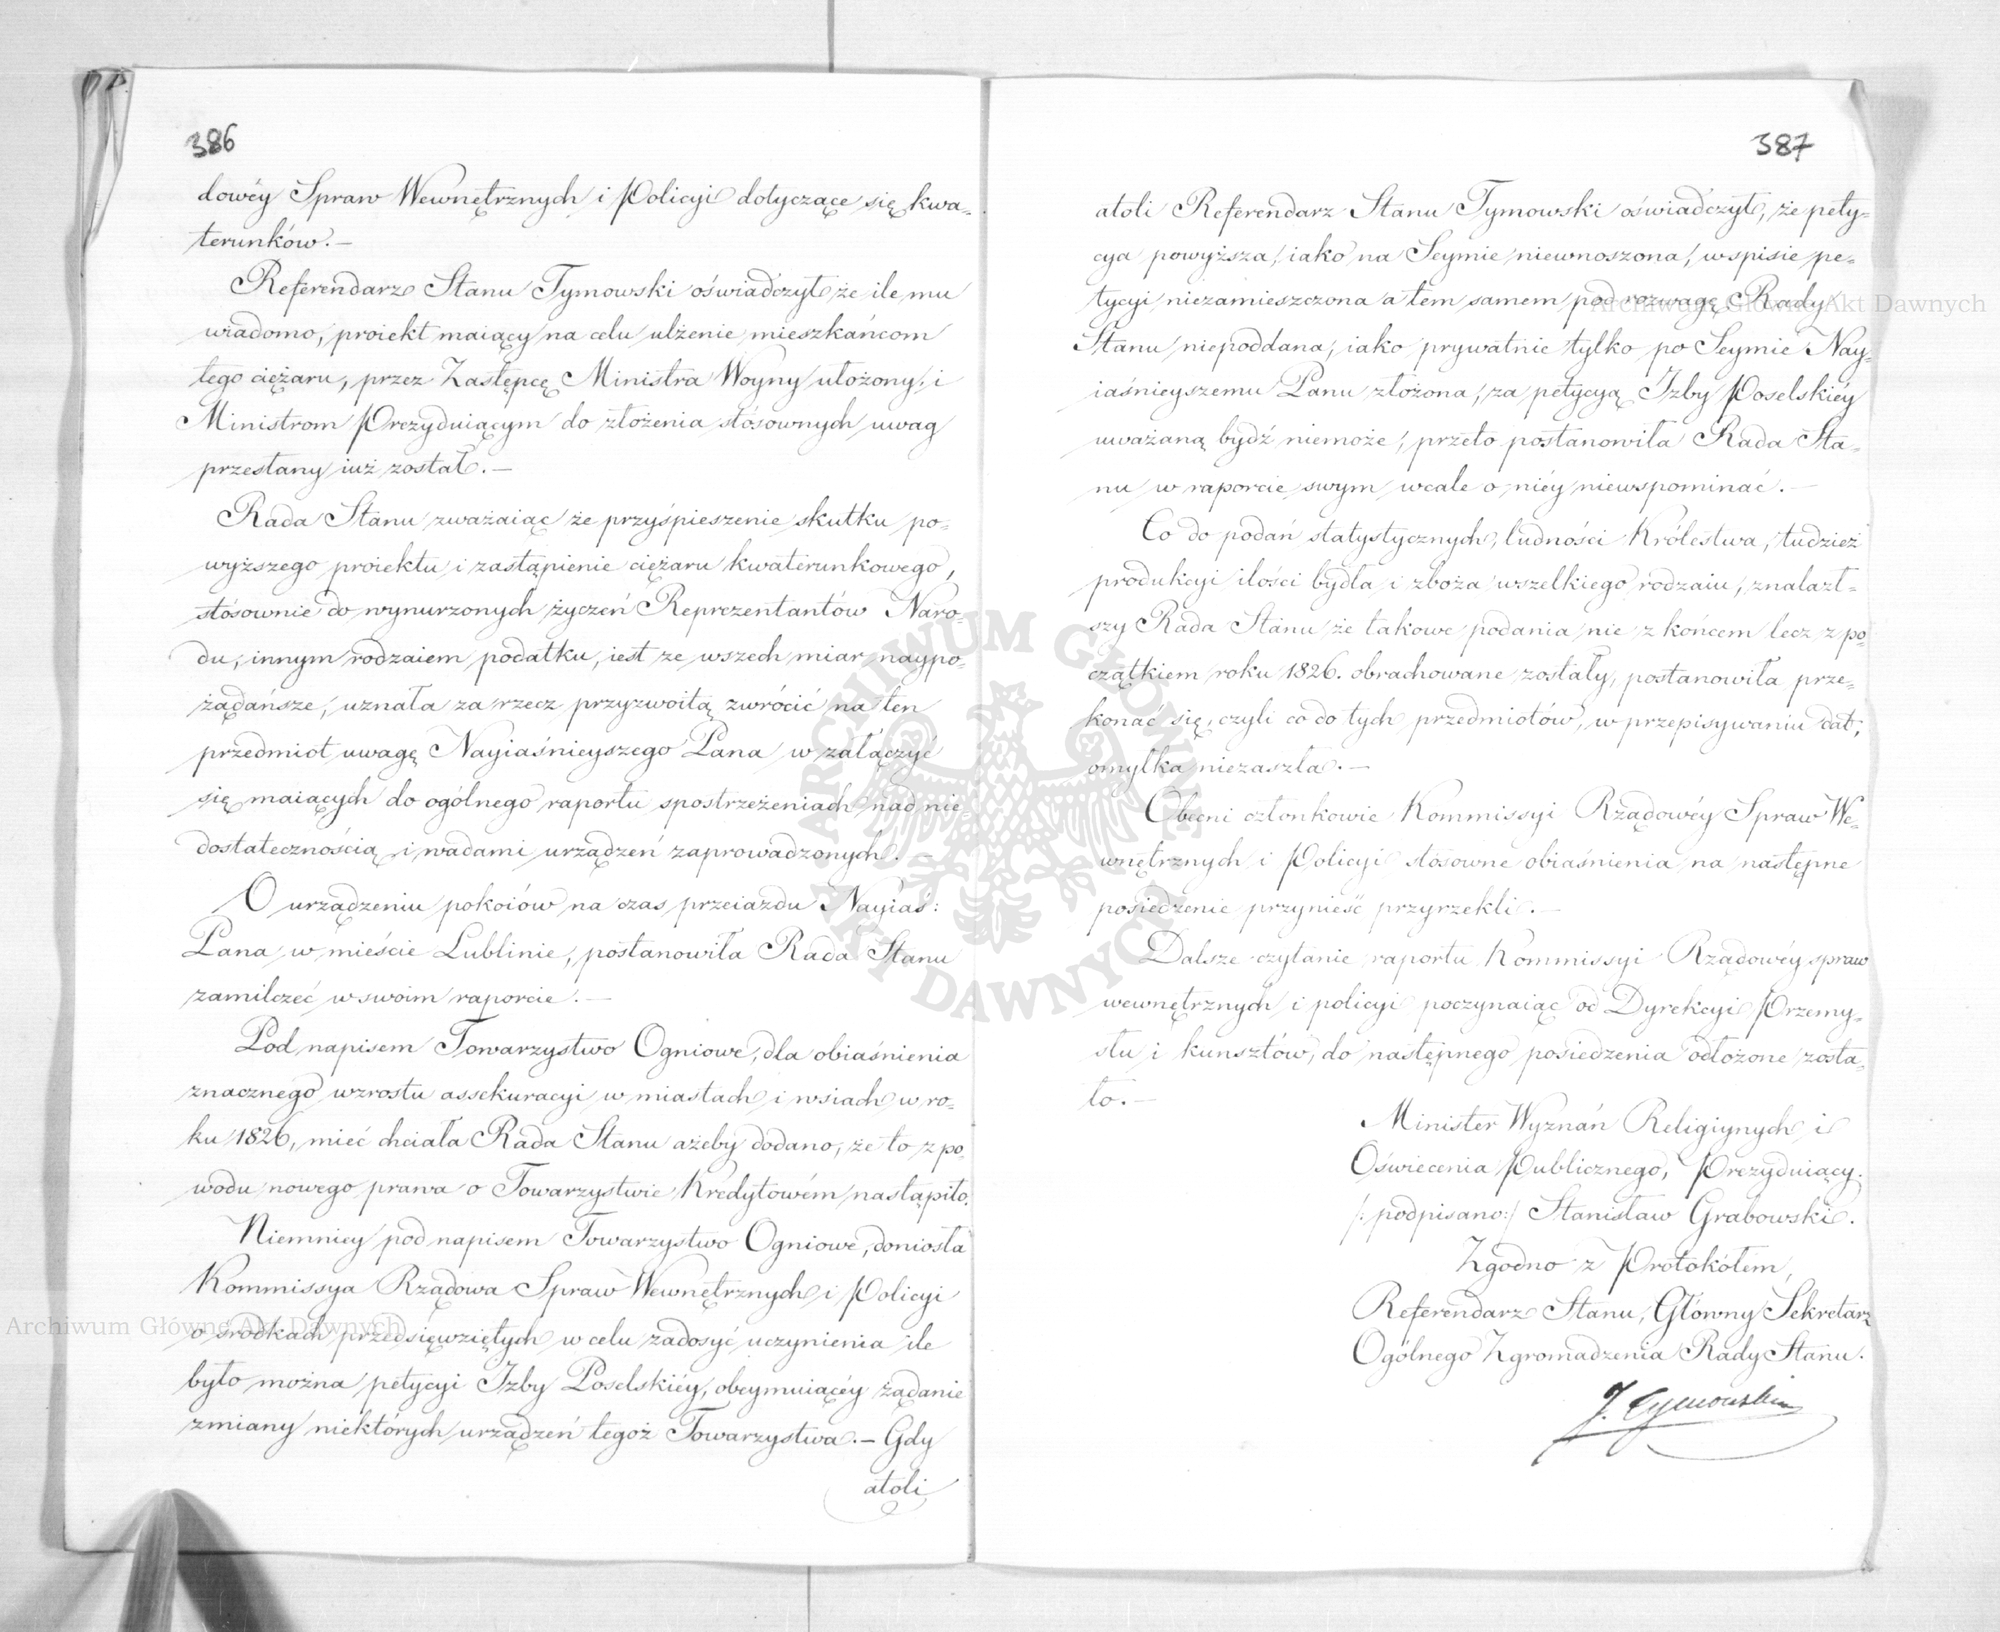 386
dowéy Spraw Wewnętrznych i Policyi dotyczące się kwa-
terunków.—
Referendarz Stanu Tymowski oświadczył że ile mu
wiadomo, proiekt maiący na celu ulżenie mieszkańcom
tego ciężaru, przez Zastępcę Ministra Woyny ułożony, i
Ministrom Prezyduiącym do złożenia stósownych uwag
przesłany iuż został.—
Rada Stanu zważaiąc że przyśpieszenie skutku po-
wyższego proiektu i zastąpienie ciężaru kwaterunkowego,
stósownie do wynurzonych życzeń Reprezentantów Naro-
du, innym rodzaiem podatku, iest ze wszech miar naypo-
żądańsze, uznała za rzecz przyzwoitą zwrócić na ten
przedmiot uwagę Nayiaśnieyszego Pana w załączyć
się maiących do ogólnego raportu spostrzeżeniach nad nie-
dostatecznością i wadami urządzeń zaprowadzonych.—
O urządzeniu pokoiów na czas przeiazdu Nayiaś:
Pana w mieście Lublinie, postanowiła Rada Stanu
zamilczeć w swoim raporcie.—
Pod napisem Towarzystwo Ogniowe, dla obiaśnienia
znacznego wzrostu assekuracyi w miastach i wsiach w ro-
ku 1826, mieć chciała Rada Stanu ażeby dodano, że to z po-
wodu nowego prawa o Towarzystwie Kredytowém nastąpiło.
Niemniey pod napisem Towarzystwo Ogniowe, doniosła
Kommissya Rządowa Spraw Wewnętrznych i Policyi
o środkach przedsięwziętych w celu zadosyć uczynienia ile
było można petycyi Izby Poselskiéy, obeymuiącéy żądanie
zmiany niektórych urządzeń tegoż Towarzystwa.— Gdy
atoli
387
atoli Referendarz Stanu Tymowski oświadczył, że pety-
cya powyższa, iako na Seymie niewnoszona, w spisie pe-
tycyi niezamieszczona a tem samem pod rozwagę Rady
Stanu niepoddana, iako prywatnie tylko po Seymie Nay-
iaśnieyszemu Panu złożona, za petycyą Izby Poselskiéy
uważaną bydź niemoże, przeto postanowiła Rada Sta-
nu w raporcie swym wcale o niéy niewspominać.—
Co do podań statystycznych, ludności Królestwa, tudzież
produkcyi ilości bydła i zboża wszelkiego rodzaiu, znalazł-
szy Rada Stanu że takowe podania nie z końcem lecz z po-
czątkiem roku 1826. obrachowane zostały, postanowiła prze-
konać się, czyli co do tych przedmiotów, w przepisywaniu dat,
omyłka niezaszła.—
Obecni członkowie Kommissyi Rządowéy Spraw We-
wnętrznych i Policyi stósowne obiaśnienia na następne
posiedzenie przynieść przyrzekli.—
Dalsze czytanie raportu Kommissyi Rządowéy spraw
wewnętrznych i policyi poczynaiąc od Dyrekcyi Przemy-
słu i kunsztów, do następnego posiedzenia odłożone zosta-
ło.—
Minister Wyznań Religiynych i
Oświecenia Publicznego, Prezyduiący.
/: podpisano:/ Stanisław Grabowski.
Zgodno z Protokółem,
Referendarz Stanu, Główny Sekretarz
Ogólnego Zgromadzenia Rady Stanu.
J. Tymowski
Archiwum Główne Akt Dawnych
Archiwum Główne Akt Dawnych
ARCHIWUM GŁÓWNE AKT DAWNYCH